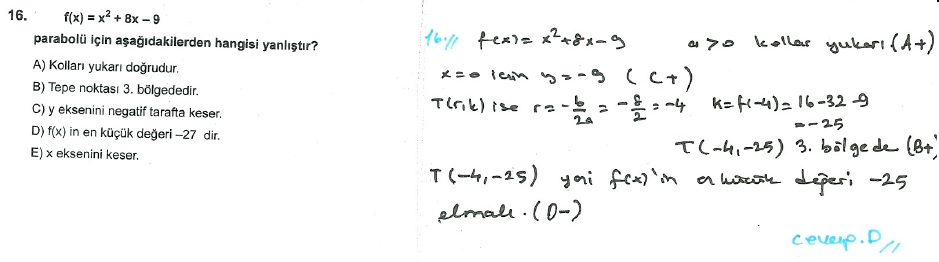 16. f(x) = x² + 8x – 9
parabolü için aşağıdakilerden hangisi yanlıştır?
A) Kolları yukarı doğrudur.
B) Tepe noktası 3. bölgededir.
C) y eksenini negatif tarafta keser.
D) f(x) in en küçük değeri –27 dir.
E) x eksenini keser.
16.// f(x) = x²+8x-9 a>0 kollar yukarı (A+)
x=0 için y=-9 (C+)
T(r,k) ise r = -b/2a = -8/2 = -4 k=f(-4)= 16-32-9
=-25
T(-4,-25) 3. bölgede (B+)
T(-4,-25) yani f(x)'in en küçük değeri -25
olmalı. (D-)
cevap.D//